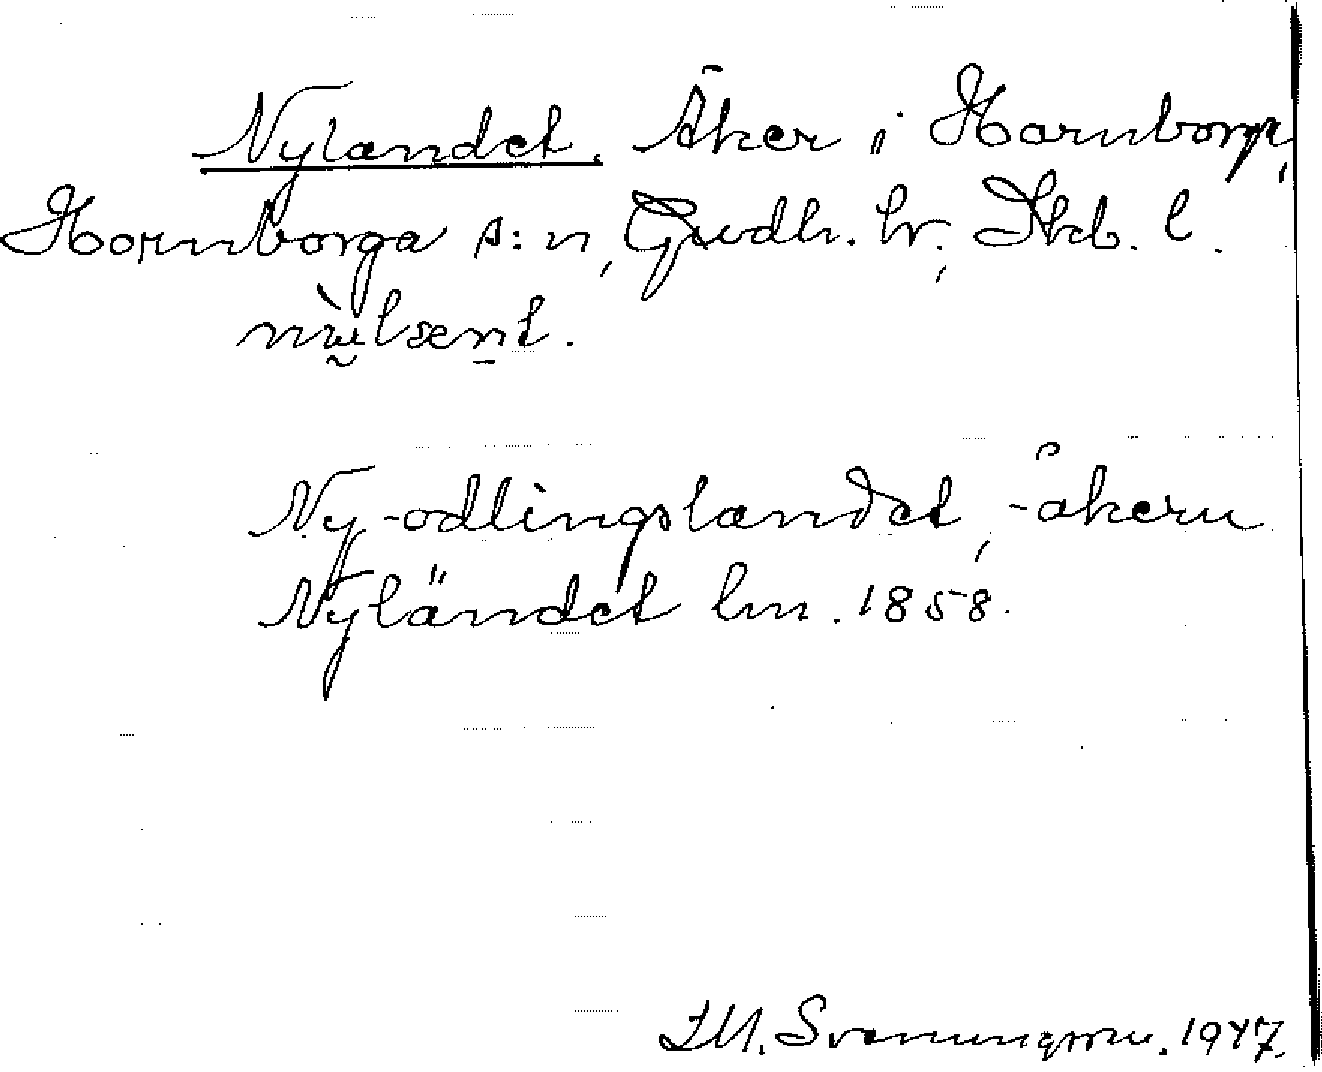 Nylandet. Åker i Hornborga,
Hornborga s:n, Gudh. hr, Skb. l.
Ny-odlingslandet, -åkern
Nyländet lm. 1858.
Svenungsson. 1947.